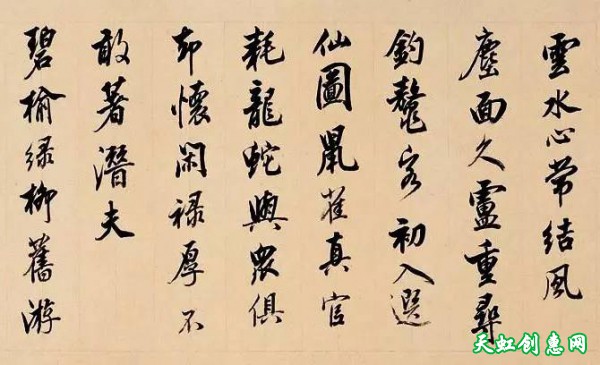 雲水心常結風
塵面久盧重尋
釣鼇客初入選
仙圖鼠雀真官
耗龍蛇與眾俱
却懷閑祿厚不
敢著潛夫
碧榆緑柳舊游
天虹创惠网